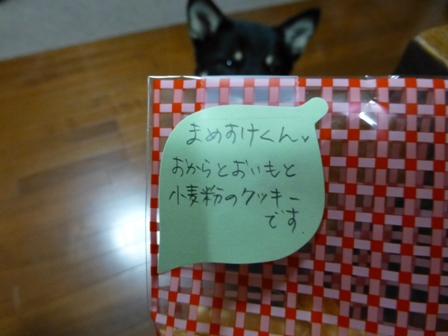 まめすけくん♥
おからとおいもと
小麦粉のクッキー
です.